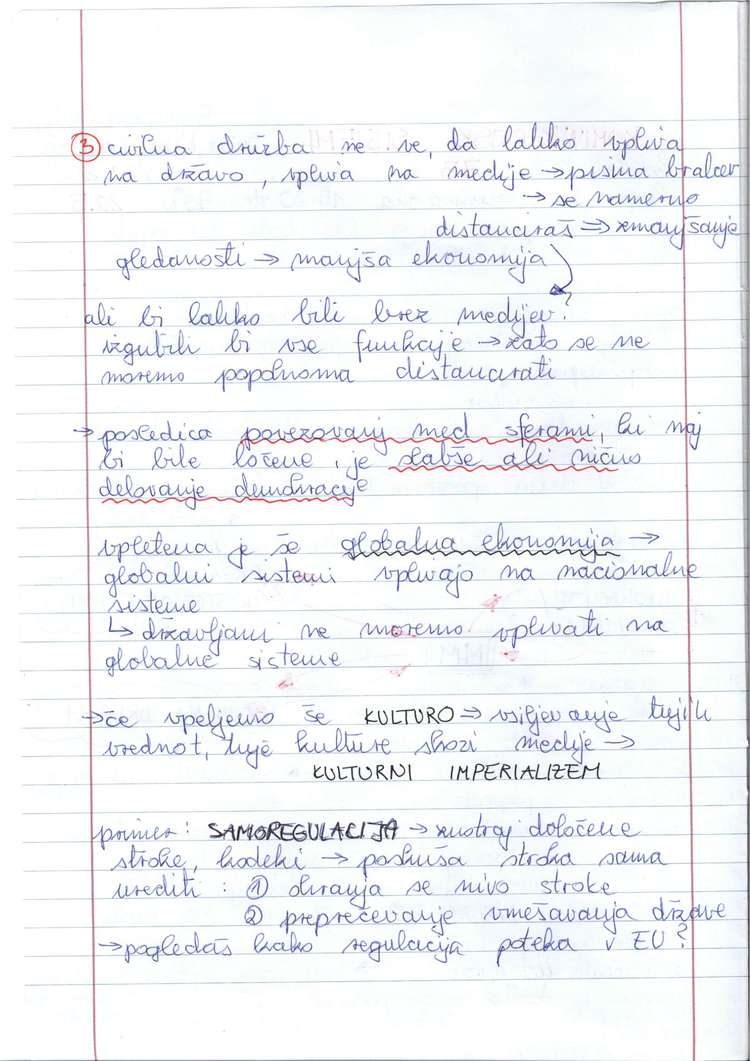 ③ civilna družba ne ve, da lahko vpliva
na državo, vpliva na medije → pisma bralcev
→ se namerno
distanciraš ⇒ zmanjšanje
gledanosti → manjša ekonomija
ali bi lahko bili brez medijev?
izgubili bi vse funkcije → zato se ne
moremo popolnoma distancirati
→ posledica povezovanj med sferami, ki naj
bi bile ločene, je slabše ali nično
delovanje demokracije
vpletena je še globalna ekonomija →
globalni sistemi vplivajo na nacionalne
sisteme
↳ državljani ne moremo vplivati na
globalne sisteme
→ če vpeljemo še KULTURO ⇒ vsiljevanje tujih
vrednot, tuje kulture skozi medije →
KULTURNI IMPERIALIZEM
primer: SAMOREGULACIJA → znotraj določene
stroke, kodeki → poskuša stroka sama
urediti: ① ohranja se nivo stroke
② preprečevanje vmešavanja države
→ pogledaš kako regulacija poteka v EU?